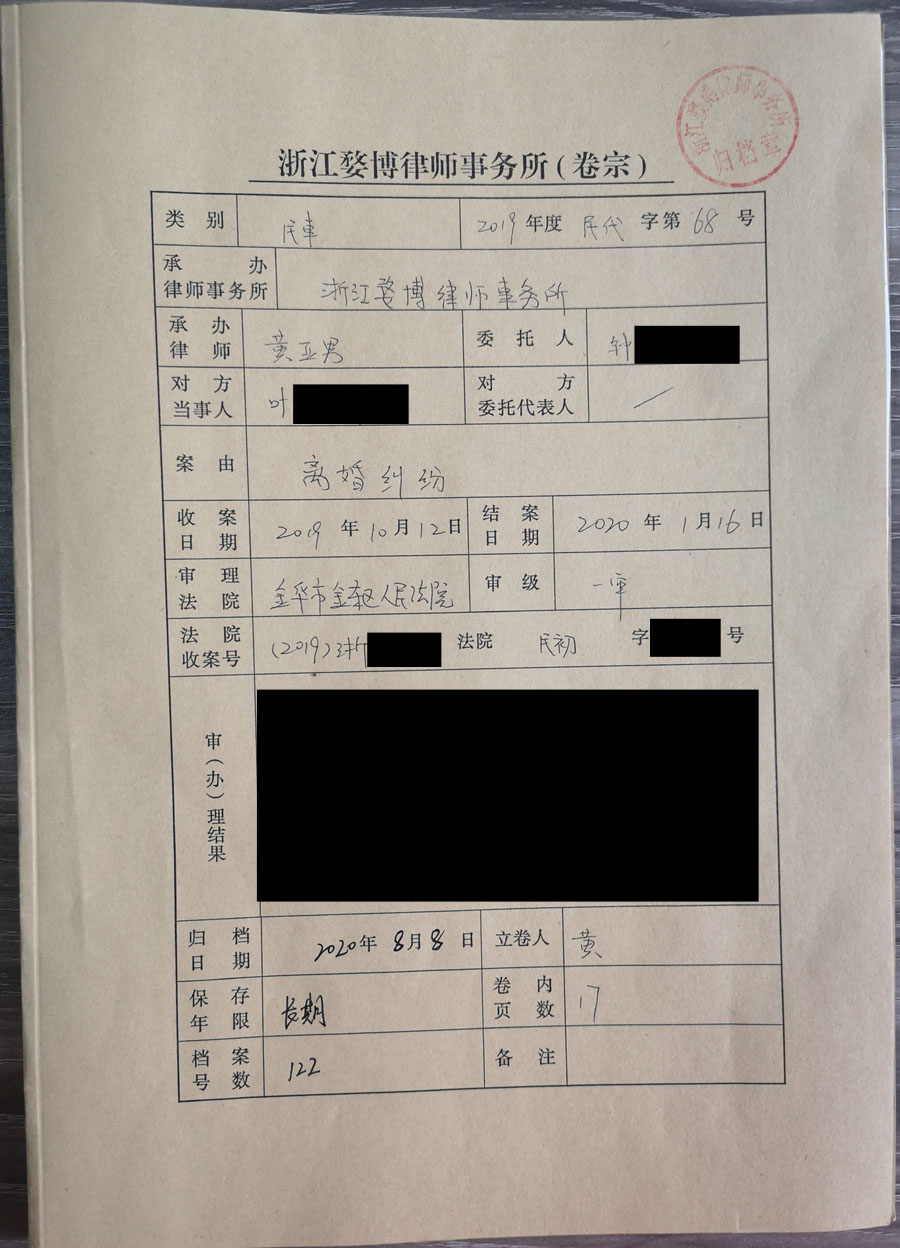 浙江婺博律师事务所
归档章
浙江婺博律师事务所(卷宗)
类别 民事 2019年度 民代 字第 68 号
承办
律师事务所 浙江婺博律师事务所
承办
律师 黄亚男 委托人 钟
对方
当事人 叶 对方
委托代表人 /
案由 离婚纠纷
收案
日期 2019年10月12日 结案
日期 2020年1月16日
审理
法院 金华市金东区人民法院 审级 一审
法院
收案号 (2019)浙 法院 民初 字 号
审(办)理结果
归档
日期 2020年8月8日 立卷人 黄
保存
年限 长期 卷内
页数 17
档案
号数 122 备注